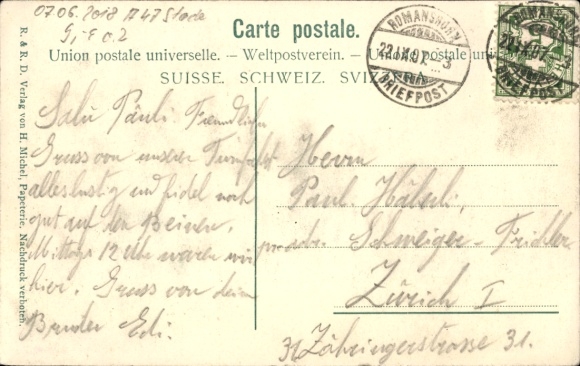 07.06.2018
Carte postale.
Union postale universelle. – Weltpostverein. –
SUISSE. SCHWEIZ.
ROMANSHORN
22.IX.07. – 3
BRIEFPOST
ROMANSHORN
BRIEFPOST
R. & R. D. Verlag von H. Michel, Papeterie. Nachdruck verboten.
Salü Päuli. Freundlichen
Gruss von unserer Turnfahrt
alles lustig und fidel noch
gut auf den Beinen.
Mittags 12 Uhr waren wir
hier. Gruss von deinem
Bruder Edi.
Herrn
Paul
Schweizer -
Zürich I
31 Zähringerstrasse 31.